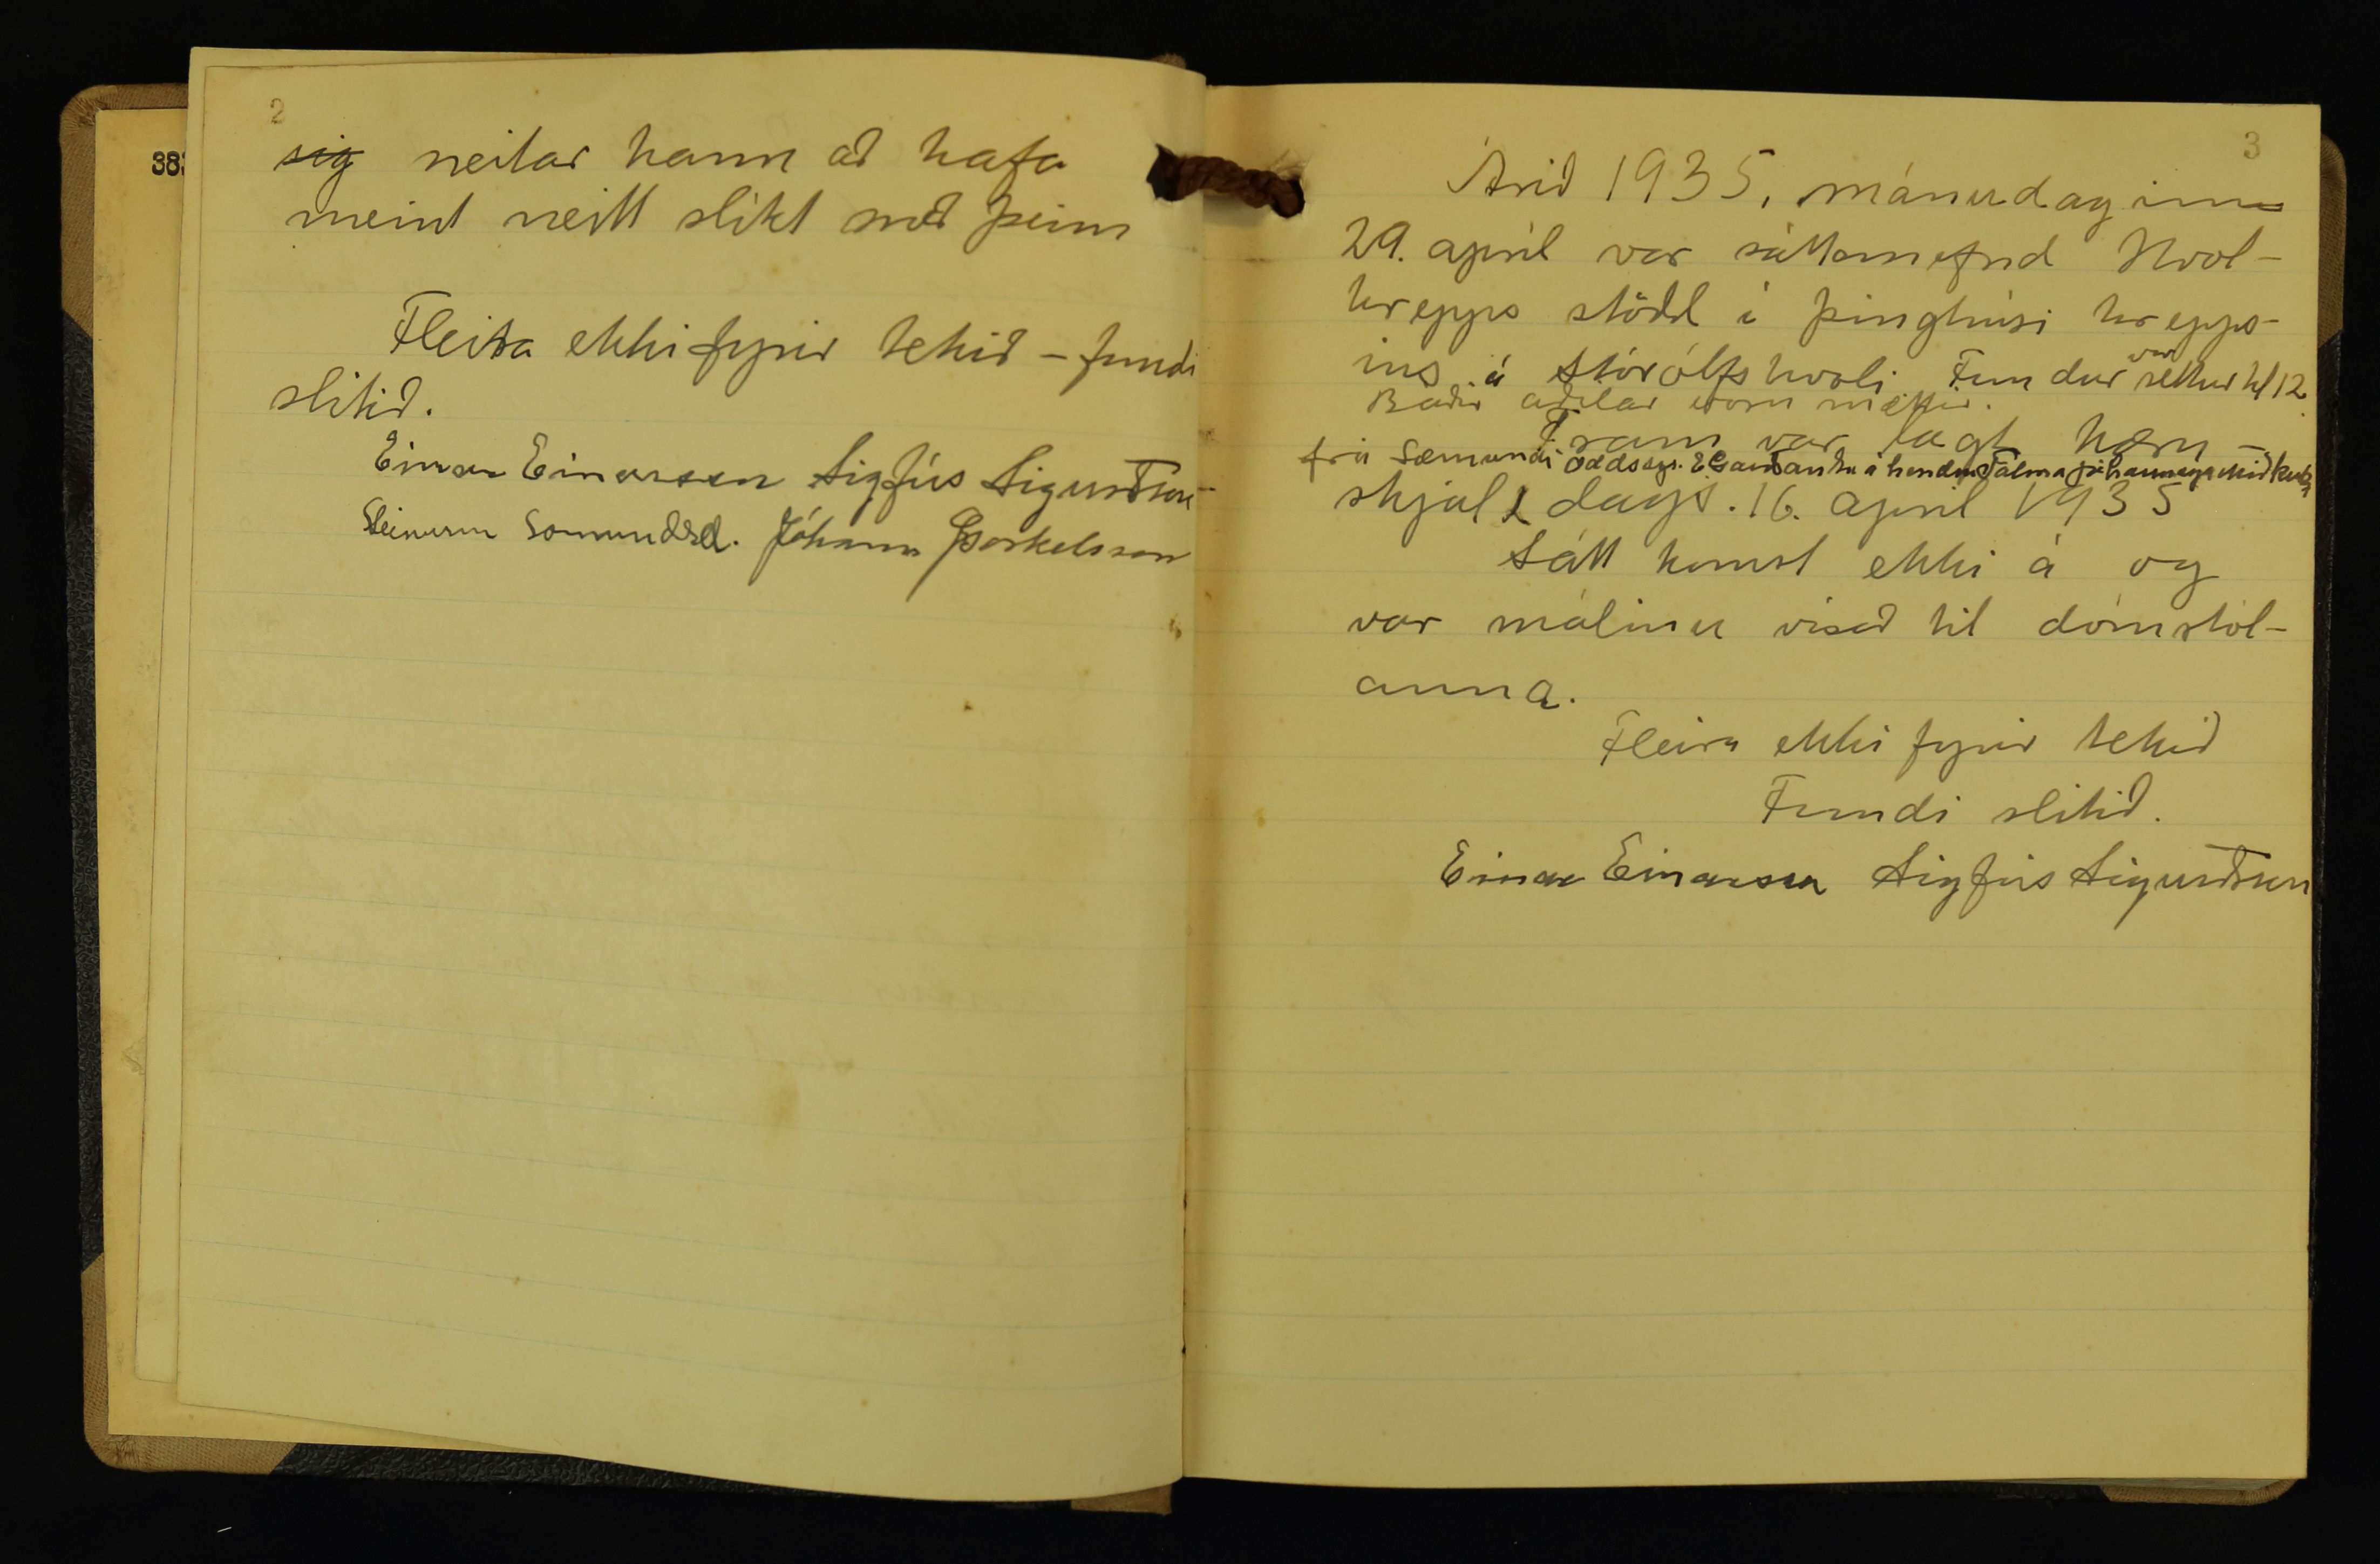 2
sig neitar hann að hafa
meint neitt slíkt með þeim
Fleira ekki fyrir tekið - fundi
slitið.
Einar Einarsson Sigfús Sigurðsson
Steinunn Sæmundsd. Jóhann Þorkelsson
383
3
Árið 1935, mánudaginn
29. apríl var sáttanefnd Hvol-
hrepps stödd í þinghúsi hrepps-
ins á Stórólfshvoli. Fundur var settur kl 12
Báðir aðilar voru mættir.
Fram var lagt kæru-
frá Sæmundi Oddssyni á hendur Pálma Jóhannssyni
skjal dags. 16. apríl 1935
Sátt komst ekki á og
var málinu vísað til dómstól-
anna.
Fleira ekki fyrir tekið
Fundi slitið.
Einar Einarsson Sigfús Sigurðsson